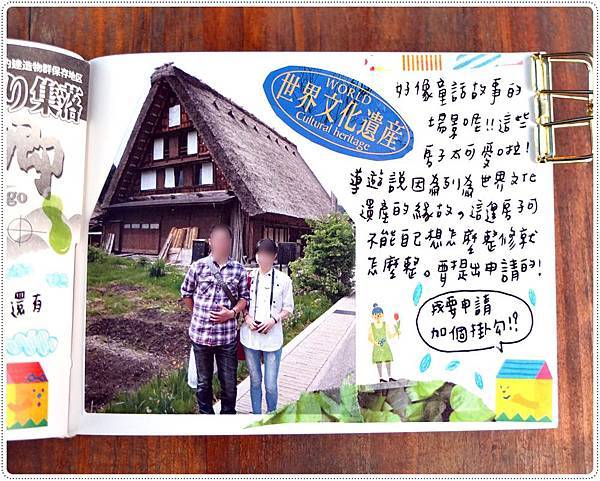 的建造物群保存地区
り集落
鄉
go
還有
WORLD
世界文化遺産
Cultural heritage
好像童話故事的
場景喔!!這些
房子太可愛啦!
導遊說因為列為世界文化
遺產的緣故。這邊房子可
不能自己想怎麼整修就
怎麼整。要提出申請的!
我要申請
加個掛勾!?